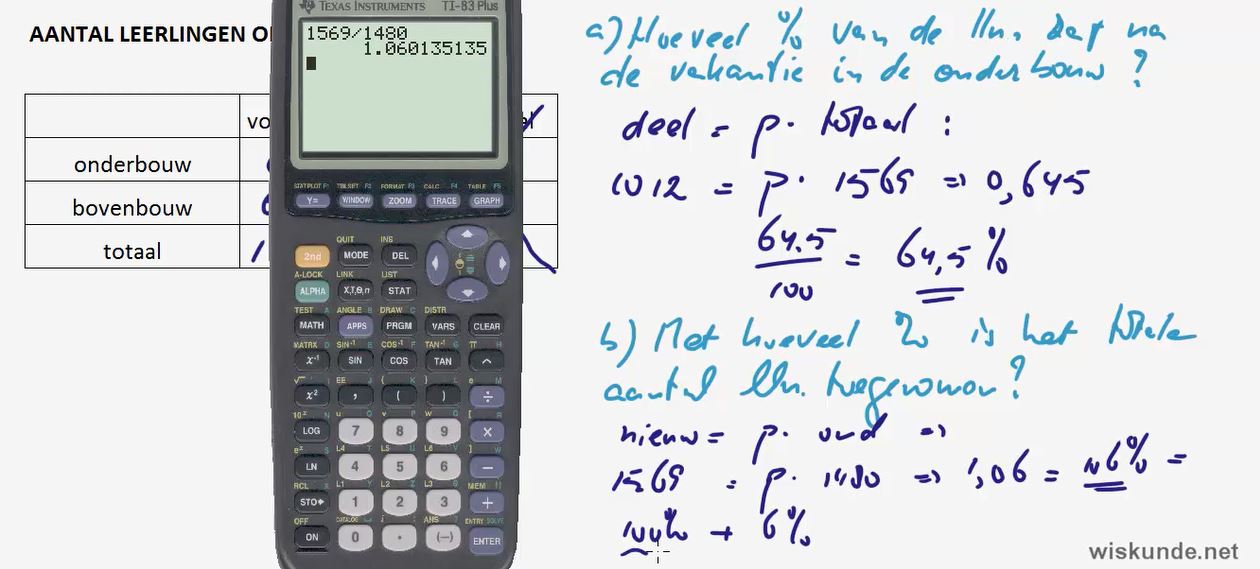 TEXAS INSTRUMENTS TI-83 Plus
AANTAL LEERLINGEN O
1569/1480
1.060135135
vo
al
onderbouw
bovenbouw
totaal
STAT PLOT F1 TBLSET F2 FORMAT F3 CALC F4 TABLE F5
Y= WINDOW ZOOM TRACE GRAPH
QUIT INS
2nd MODE DEL
A-LOCK LINK LIST
ALPHA X,T,θ,n STAT
TEST A ANGLE B DRAW C DISTR
MATH APPS PRGM VARS CLEAR
MATRX D SIN⁻¹ E COS⁻¹ F TAN⁻¹ G π H
x⁻¹ SIN COS TAN ^
√ I EE J { K } L e M
x² , ( ) ÷
10ˣ N u O v P w Q [ R
LOG 7 8 9 ×
eˣ S L4 T L5 U L6 V ] W
LN 4 5 6 −
RCL X L1 Y L2 Z L3 θ MEM "
STO▸ 1 2 3 +
OFF CATALOG i : ANS ? ENTRY SOLVE
ON 0 . (−) ENTER
a) Hoeveel % van de lln. zat na
de vakantie in de onderbouw?
deel = p. totaal :
1012 = p. 1569 => 0,645
64.5
/100 = 64,5%
b) Met hoeveel % is het totale
aantal lln. toegenomen?
nieuw = p. oud =>
1569 = p. 1480 => 1,06 = 106% =
100% + 6%
wiskunde.net